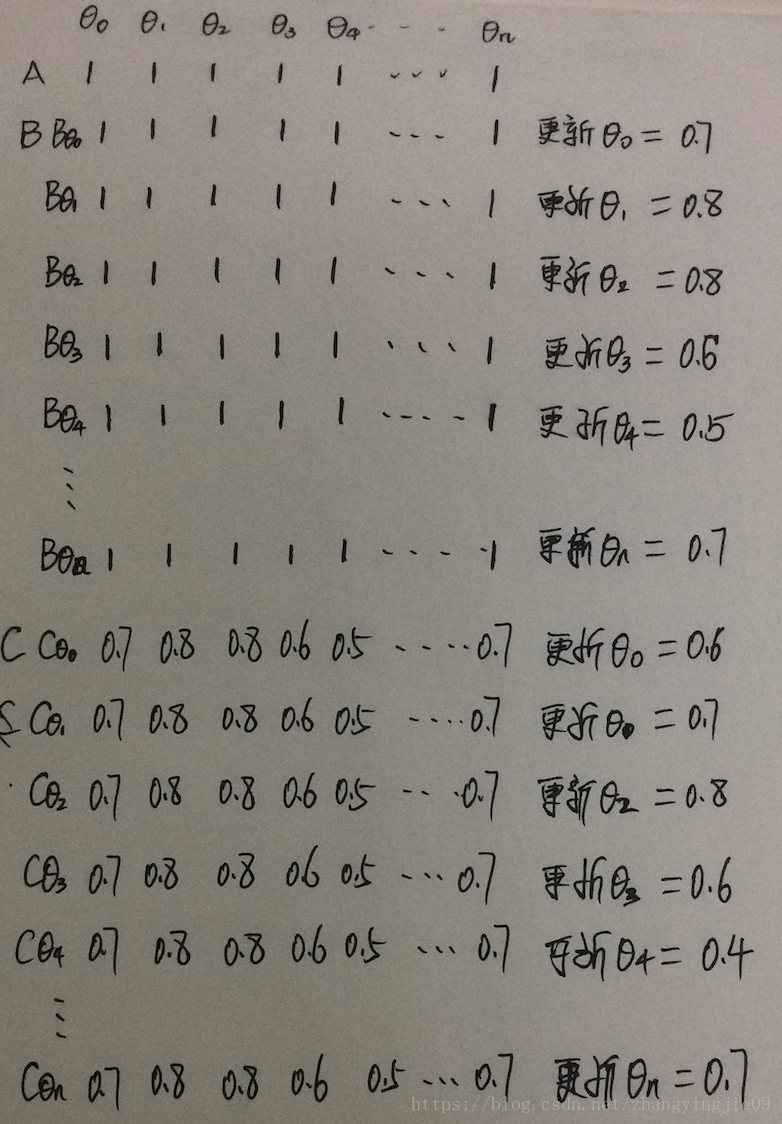 θ₀ θ₁ θ₂ θ₃ θ₄ - - - θₙ
A 1 1 1 1 1 --- 1
B Bθ₀ 1 1 1 1 1 --- 1 更新θ₀ = 0.7
Bθ₁ 1 1 1 1 1 ---- 1 更新θ₁ = 0.8
Bθ₂ 1 1 1 1 1 ---- 1 更新θ₂ = 0.8
Bθ₃ 1 1 1 1 1 ---- 1 更新θ₃ = 0.6
Bθ₄ 1 1 1 1 1 ----- 1 更新θ₄ = 0.5
⋮
Bθₙ 1 1 1 1 1 ----- 1 更新θₙ = 0.7
C Cθ₀ 0.7 0.8 0.8 0.6 0.5 ----- 0.7 更新θ₀ = 0.6
Cθ₁ 0.7 0.8 0.8 0.6 0.5 ----- 0.7 更新θ = 0.7
Cθ₂ 0.7 0.8 0.8 0.6 0.5 --- 0.7 更新θ₂ = 0.8
Cθ₃ 0.7 0.8 0.8 0.6 0.5 --- 0.7 更新θ₃ = 0.6
Cθ₄ 0.7 0.8 0.8 0.6 0.5 --- 0.7 更新θ₄ = 0.4
⋮
Cθₙ 0.7 0.8 0.8 0.6 0.5 --- 0.7 更新θₙ = 0.7
https://blog.csdn.net/zhangyingjie09